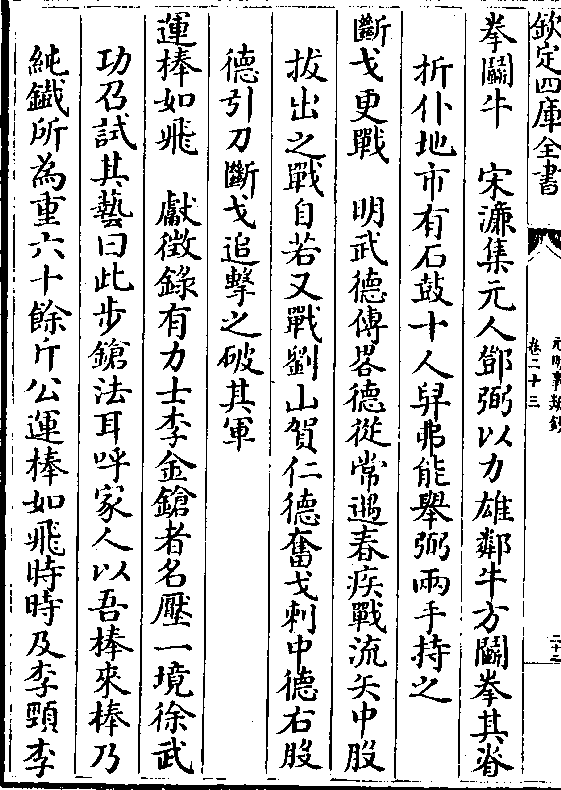 欽定四庫全書
元明事類鈔
卷二十三
二十七
拳鬭牛　宋濂集元人鄧弼以力雄鄰牛方鬭拳其脊
折仆地市有石鼓十人舁弗能舉弼兩手持之
斷戈更戰　明武德傳畧德從常遇春疾戰流矢中股
拔出之戰自若又戰劉山賀仁德奮戈刺中德右股
德引刀斷戈追擊之破其軍
運棒如飛　獻徵錄有力士李金鎗者名壓一境徐武
功召試其藝曰此步鎗法耳呼家人以吾棒來棒乃
純鐵所為重六十餘斤公運棒如飛時時及李頸李